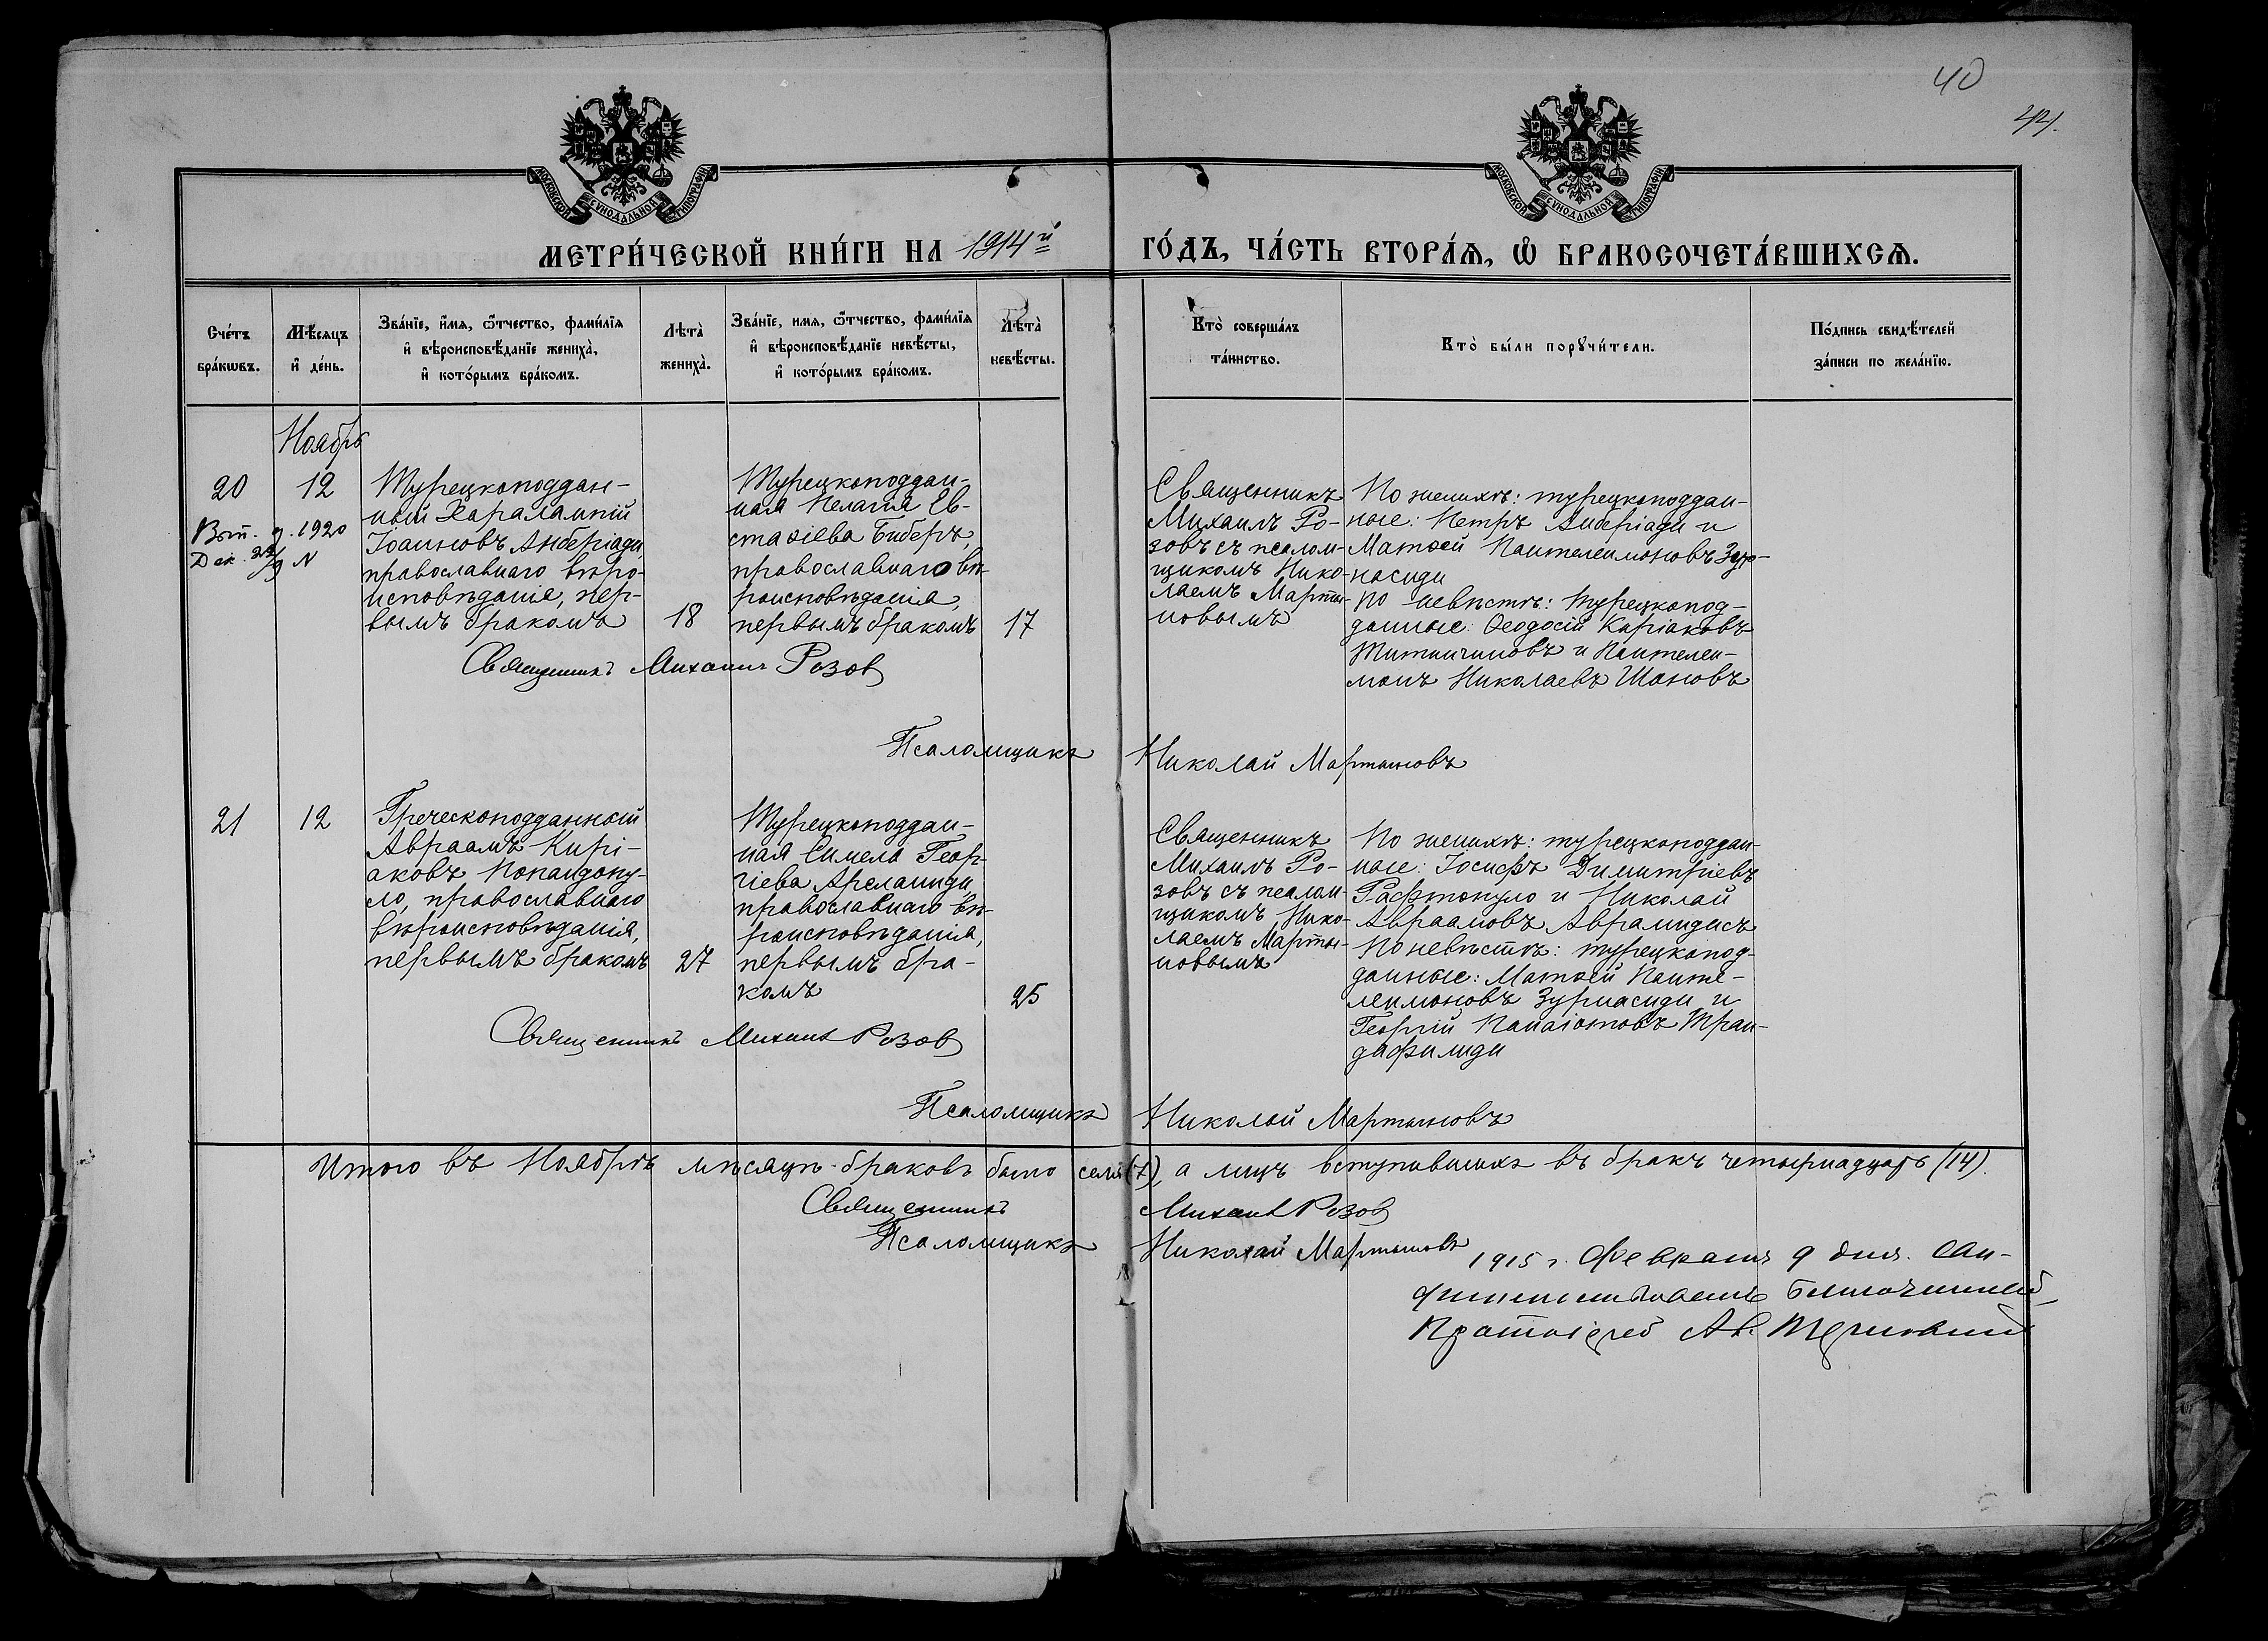 40
41.
МОСКОВСКОЙ СѴНОДАЛЬНОЙ ТИПОГРАФІИ
МОСКОВСКОЙ СѴНОДАЛЬНОЙ ТИПОГРАФІИ
МЕТРИ́ЧЕСКОЙ КНИ́ГИ НА 1914й ГО́ДЪ, ЧА́СТЬ ВТОРА́Ѧ, Ѡ҆ БРАКОСОЧЕТА́ВШИХСѦ.
Сче́тъ
бра́кѡвъ.
Мѣ́сѧцъ
и҆ де́нь.
Зва́нїе, и҆́мѧ, ѻ҆́тчество, фами́лїѧ
и҆ вѣроисповѣ́данїе жениха̀,
и҆ кото́рымъ бра́комъ.
Лѣта̀
жениха̀.
Зва́нїе, имѧ, ѻ҆́тчество, фами́лїѧ
и҆ вѣроисповѣ́данїе невѣ́сты,
и҆ кото́рымъ бра́комъ.
Лѣта̀
невѣ́сты.
Кто̀ соверша́лъ
та́инство.
Кто̀ бы́ли порꙋчи́тели.
По́дпись свидѣ́телей
за́писи по жела́нїю.
Ноябрь
20
Вып. 9. 1920
Дек.
N
12
Турецкоподдан-
ный Харалампій
Іоанновъ Анберіади,
православнаго вѣро-
исповѣданія, пер-
вымъ бракомъ
18
Турецкоподдан-
ная Пелагія Ев-
стаѳіева Биберъ,
православнаго вѣ-
роисповѣданія,
первымъ бракомъ
17
Священникъ
Михаилъ Ро-
зовъ съ псалом-
щикомъ Нико-
лаемъ Марты-
новымъ
По женихѣ: турецкоподдан-
ные: Петръ Анберіади и
Матѳей Пантелеимоновъ Зур-
насиди
по невѣстѣ: турецкопод-
данные: Ѳеодосій Киріаковъ
и Пантелеи-
монъ Николаевъ Шоновъ
Священникъ Михаилъ Розовъ
Псаломщикъ Николай Мартыновъ
21
12
Греческоподданный
Авраамъ Кирі-
аковъ Попандопу-
ло, православнаго
вѣроисповѣданія,
первымъ бракомъ
27
Турецкоподдан-
ная Симела Геор-
гіева Арсланиди,
православнаго вѣ-
роисповѣданія,
первымъ бра-
комъ
25
Священникъ
Михаилъ Ро-
зовъ съ псалом-
щикомъ Нико-
лаемъ Марты-
новымъ
По женихѣ: турецкоподдан-
ные: Іосифъ Димитріевъ
Рафтопуло и Николай
Авраамовъ Аврамидисъ
По невѣстѣ: турецкопод-
данные: Матѳей Панте-
леимоновъ Зурнасиди и
Георгій Панаіотовъ Тран-
дафилиди
Священникъ Михаилъ Розовъ
Псаломщикъ Николай Мартыновъ
Итого въ Ноябрѣ мѣсяцѣ браковъ было семь (7), а лицъ вступившихъ въ бракъ четырнадцать (14).
Священникъ Михаилъ Розовъ
Псаломщикъ Николай Мартыновъ
1915 г. Февраля 9 дня.
Благочинный,
Протоіерей Ал.